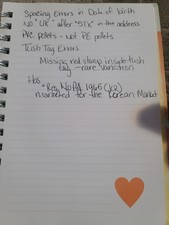 Spacing Errors in Date of birth
No "UK" after "STK" in the address
PVC pellets - Not PE pellets
Tush Tag Errors
Missing red stamp inside tush
tag - rare variation
Has
"Reg No PA. 1965 (KR)
marketed for the Korean Market